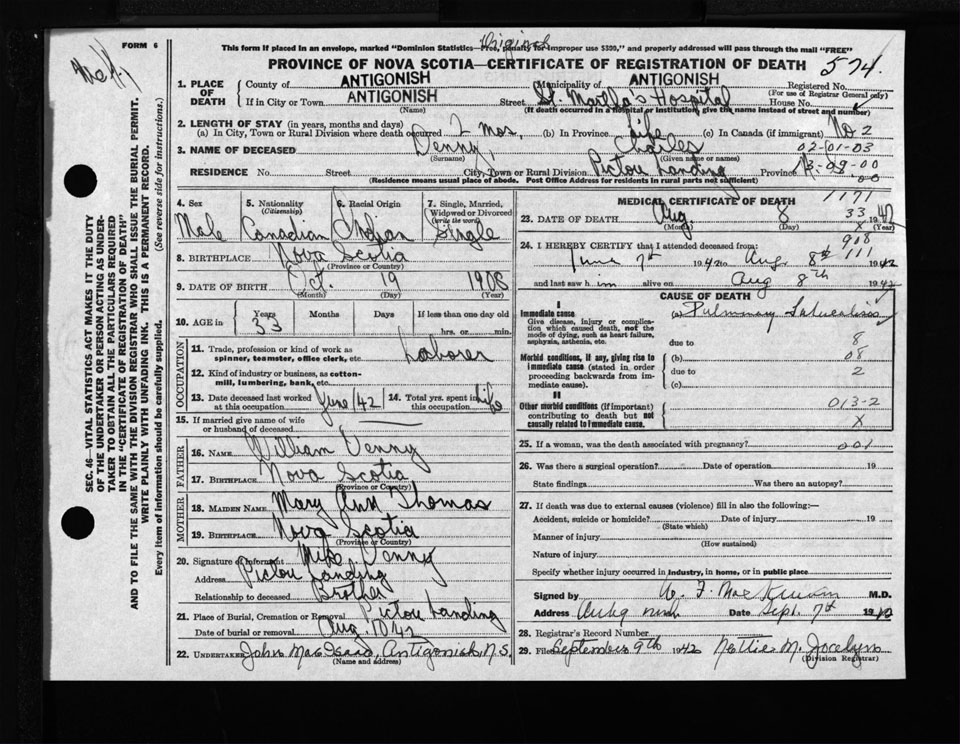 FORM 6
Original
This form if placed in an envelope, marked "Dominion Statistics—Free, penalty for improper use $300," and properly addressed will pass through the mail "FREE"
PROVINCE OF NOVA SCOTIA—CERTIFICATE OF REGISTRATION OF DEATH
574.
1. PLACE OF DEATH
County of ANTIGONISH Municipality of ANTIGONISH Registered No.
(For use of Registrar General only)
If in City or Town ANTIGONISH Street St. Martha's Hospital House No.
(Name) (If death occurred in a Hospital or Institution, give the name instead of street and number)
2. LENGTH OF STAY (in years, months and days)
(a) In City, Town or Rural Division where death occurred 2 mos. (b) In Province Life (c) In Canada (if immigrant) No 2
3. NAME OF DECEASED Denny, Charles 02-01-03
(Surname) (Given name or names)
RESIDENCE No. Street City, Town or Rural Division Pictou Landing Province 13-99-00
.00
(Residence means usual place of abode. Post Office Address for residents in rural parts not sufficient)
4. Sex 5. Nationality (Citizenship) 6. Racial Origin 7. Single, Married, Widowed or Divorced (write the word)
Male Canadian Indian Single
8. BIRTHPLACE Nova Scotia
(Province or Country)
9. DATE OF BIRTH Oct. 19 1908
(Month) (Day) (Year)
10. AGE in Years Months Days If less than one day old
33 hrs. or min.
OCCUPATION
11. Trade, profession or kind of work as spinner, teamster, office clerk, etc. Laborer
12. Kind of industry or business, as cotton-mill, lumbering, bank, etc.
13. Date deceased last worked at this occupation June/42 14. Total yrs. spent in this occupation Life
15. If married give name of wife or husband of deceased
FATHER
16. NAME William Denny
17. BIRTHPLACE Nova Scotia
(Province or Country)
MOTHER
18. MAIDEN NAME Mary Ann Thomas
19. BIRTHPLACE Nova Scotia
(Province or Country)
20. Signature of Informant Mike Denny
Address Pictou Landing
Relationship to deceased Brother
21. Place of Burial, Cremation or Removal Pictou Landing
Date of burial or removal Aug. 10/42
22. UNDERTAKER John MacIsaac, Antigonish, N.S.
(Name and address)
MEDICAL CERTIFICATE OF DEATH
1171
23. DATE OF DEATH Aug 8 33 1942
(Month) (Day) X (Year)
24. I HEREBY CERTIFY that I attended deceased from:
908
111
June 7th 1942 to Aug. 8th 1942
and last saw him alive on Aug 8th 1942
CAUSE OF DEATH
Immediate cause
Give disease, injury or complication which caused death, not the mode of dying, such as heart failure, asphyxia, asthenia, etc.
(a) Pulmonary Tuberculosis
due to 8
Morbid conditions, if any, giving rise to immediate cause (stated in order proceeding backwards from immediate cause).
(b) 08
due to 2
(c)
II
Other morbid conditions (if important) contributing to death but not causally related to immediate cause.
013-2
X
25. If a woman, was the death associated with pregnancy? 001
26. Was there a surgical operation? Date of operation 19
State findings Was there an autopsy?
27. If death was due to external causes (violence) fill in also the following:—
Accident, suicide or homicide? Date of injury 19
(State which)
Manner of injury
(How sustained)
Nature of injury
Specify whether injury occurred in industry, in home, or in public place
Signed by W. F. M.D.
Address Antigonish Date Sept. 7th 1942
28. Registrar's Record Number
29. Filed September 9th 1942 Nettie M. Jocelyn
(Division Registrar)
SEC. 46—VITAL STATISTICS ACT MAKES IT THE DUTY
OF THE UNDERTAKER OR PERSON ACTING AS UNDERTAKER TO OBTAIN ALL THE PARTICULARS REQUIRED
IN THE "CERTIFICATE OF REGISTRATION OF DEATH"
AND TO FILE THE SAME WITH THE DIVISION REGISTRAR WHO SHALL ISSUE THE BURIAL PERMIT.
WRITE PLAINLY WITH UNFADING INK. THIS IS A PERMANENT RECORD.
Every item of information should be carefully supplied. (See reverse side for instructions.)